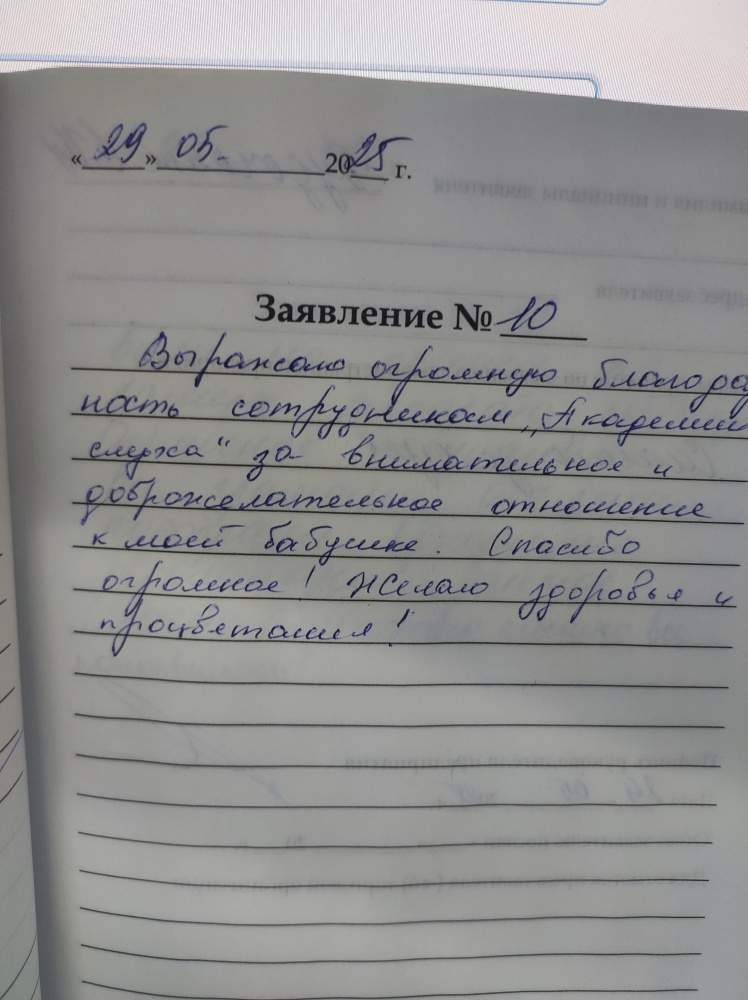 «29» 05. 2025 г.
Заявление № 10
Выражаю огромную благодар
ность сотрудникам „Академии
слуха" за внимательное и
доброжелательное отношение
к моей бабушке. Спасибо
огромное! Желаю здоровья и
процветания!